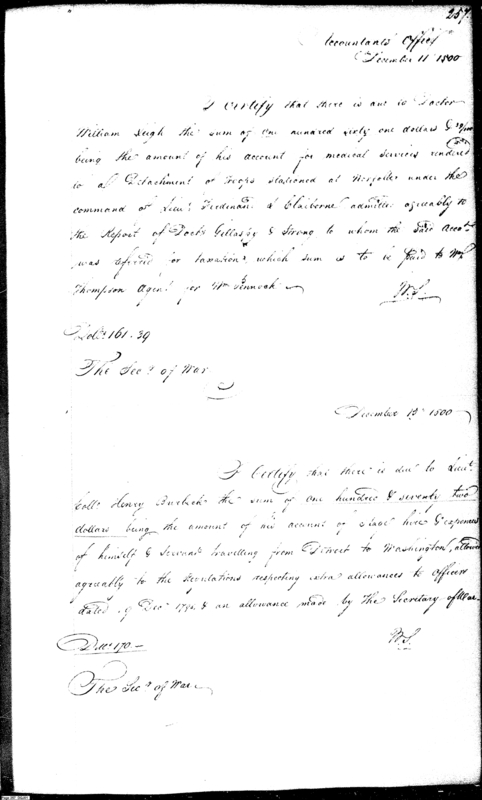 257.
Accountants Office
December 11 1800
I Certify that there is due to Doctor
William Leigh the sum of One hundred sixty one dollars & 39/100
being the amount of his account for medical services rendered
to a Detachment of troops stationed at Norfolk under the
command of Lieut. Ferdinand L Claiborne admitted agreeably to
the Report of Doctr. Gillaspy & Strong to whom the said Acct.
was referred for taxation, which sum is to be paid to Wm.
Thompson Agent for Wm. Pennock
W.S.
Dolrs. 161.39
The Secy. of War
December 13 1800
I Certify that there is due to Lieut.
Coll. Henry Burbeck the sum of One hundred & seventy two
dollars being the amount of his account of stage hire & expences
of himself & Servant travelling from Detroit to Washington, allowed
agreeably to the Regulations respecting extra allowances to Officers
dated Decr. & an allowance made by the Secretary of War.
W.S.
The Secy. of War